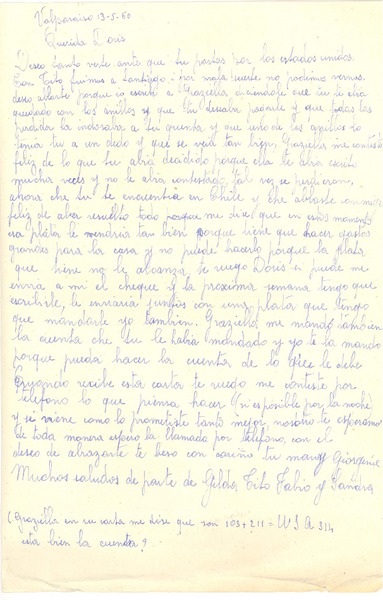 Valparaiso 13-5-60
Querida Doris
Deseo tanto verte ante que tu partas por los estados unidos.
Con Tito fuimos a Santiago i por mala suerte no podimos vernos.
deseo ablarte porque io escribi a Graziella diciendole que tu te abia
quedado con los anillos y que tu descabi pagarle y que todas las
perdidas la indosaba a tu cuenta y que uno de los anillos lo
tenia tu a un dedo y que se veia tan bien, Graziella me contestò
feliz de lo que tu abia decidido porque ella le abia escrito
mucha veces y no le abia contestado, tal vez se perdieron,
ahora che tu te encuentra en Chile y che abraste conmigo
feliz de aber resuelto todo porque me dize que in estos momentos
esa plata le vendria tan bien porque tiene que hacer gastos
grandes para la casa y no puede hacerlo porque la plata
que tiene no le alcanza, te ruego Doris si puede me
envia a mi el cheque y la proxima semana tengo que
escribirle, le enviaria juntos con una plata que tengo
que mandarle yo tambien. Graziella me mandó tambien
la cuenta che tu le habia mandado y yo te la mando
porque pueda hacer la cuenta de lo que le debe
Cuando recibe esta carta te ruego me conteste por
telefono lo que piensa hacer (si es posible por la noche)
y si viene como lo prometiste tanto mejor, nosotro te esperamos
de toda manera espero la llamada por telefono, con el
deseo de abrazarte te beso con cariño tu mamy Giorgina
Muchos saludos de parte de Gilda Tito Fabio y Sandra
(Graziella en su carta me dise que son 103 + 211 = U S A 314
esta bien la cuenta?